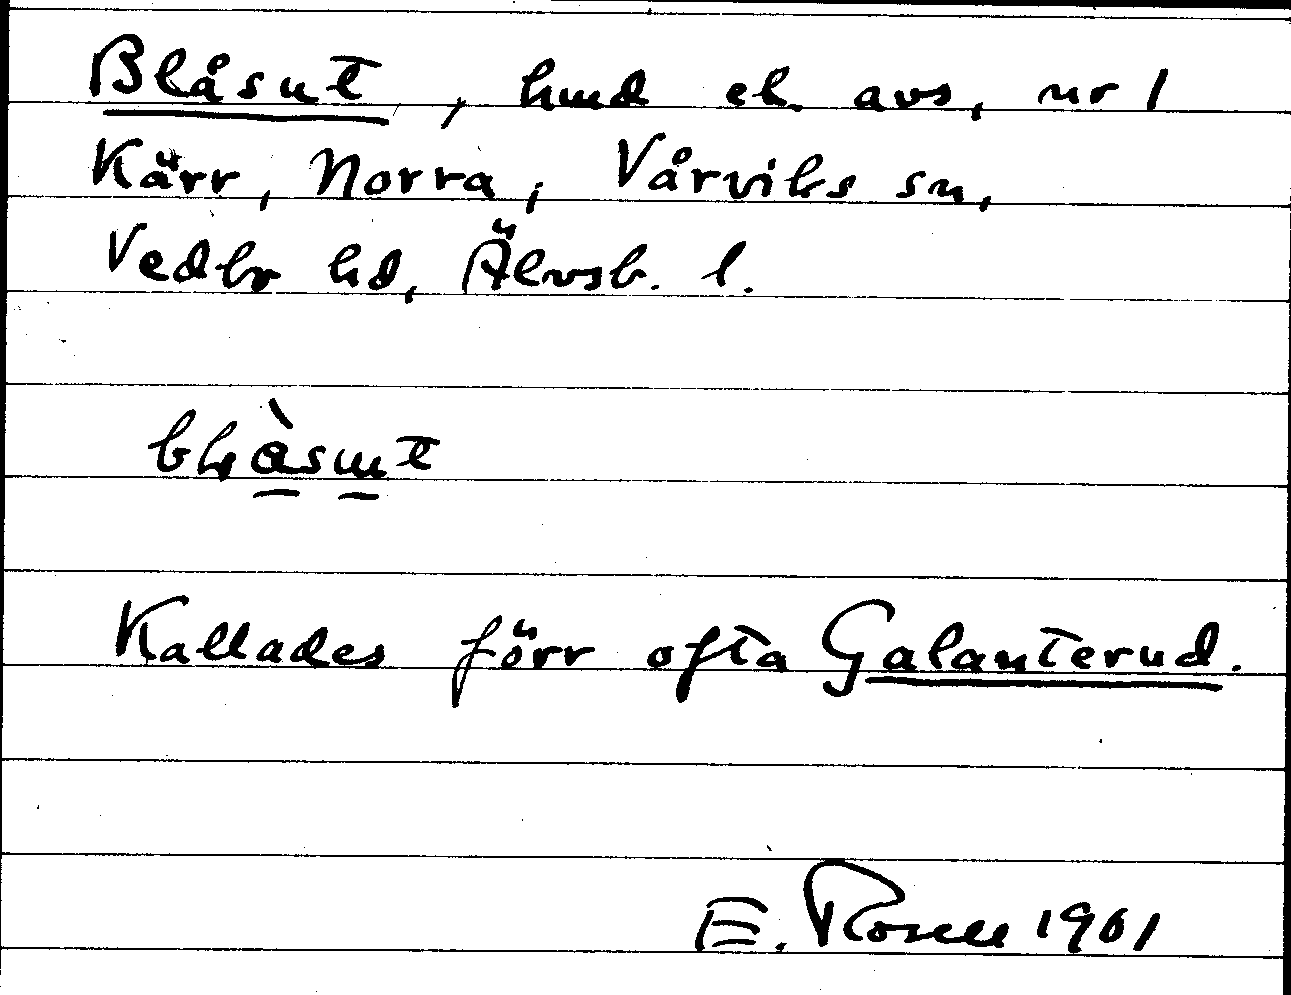 Blåsut, hmd el. avs, nr 1
Kärr, Norra, Vårviks sn,
Vedbo hd, Älvsb. l.
Kallades förr ofta Galanterud.
E. Rosell 1901